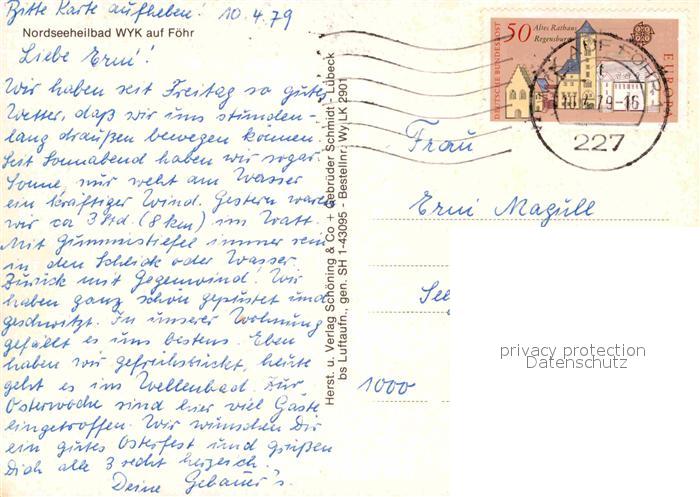 Bitte Karte aufheben! 10.4.79
Nordseeheilbad WYK auf Föhr
Liebe Erni!
Wir haben seit Freitag so gutes
Wetter, daß wir uns stunden-
lang draußen bewegen können.
Seit Sonnabend haben wir sogar
Sonne, nur weht am Wasser
ein kräftiger Wind. Gestern waren
wir ca 3 Std (8 km) im Watt.
Mit Gummistiefel immer rein
in den Schlick oder Wasser.
Zurück mit Gegenwind. Wir
haben ganz schön gepustet und
geschwitzt. In unserer Wohnung
gefällt es uns bestens. Eben
haben wir gefrühstückt, heute
geht es im Wellenbad. Zur
Osterwoche sind hier viel Gäste
eingetroffen. Wir wünschen Dir
ein gutes Osterfest und grüßen
Dich alle 3 recht herzlich.
Deine Gebauer's.
Herst. u. Verlag Schöning & Co + Gebrüder Schmidt - Lübeck
bs Luftaufn., gen. SH 1-43095 - Bestellnr. Wy LK 2901
DEUTSCHE BUNDESPOST
50
Altes Rathaus
Regensburg
EUROPA
WYK AUF FÖHR
10.4.79-16
227
Frau
Erni Magull
See
1000
privacy protection
Datenschutz